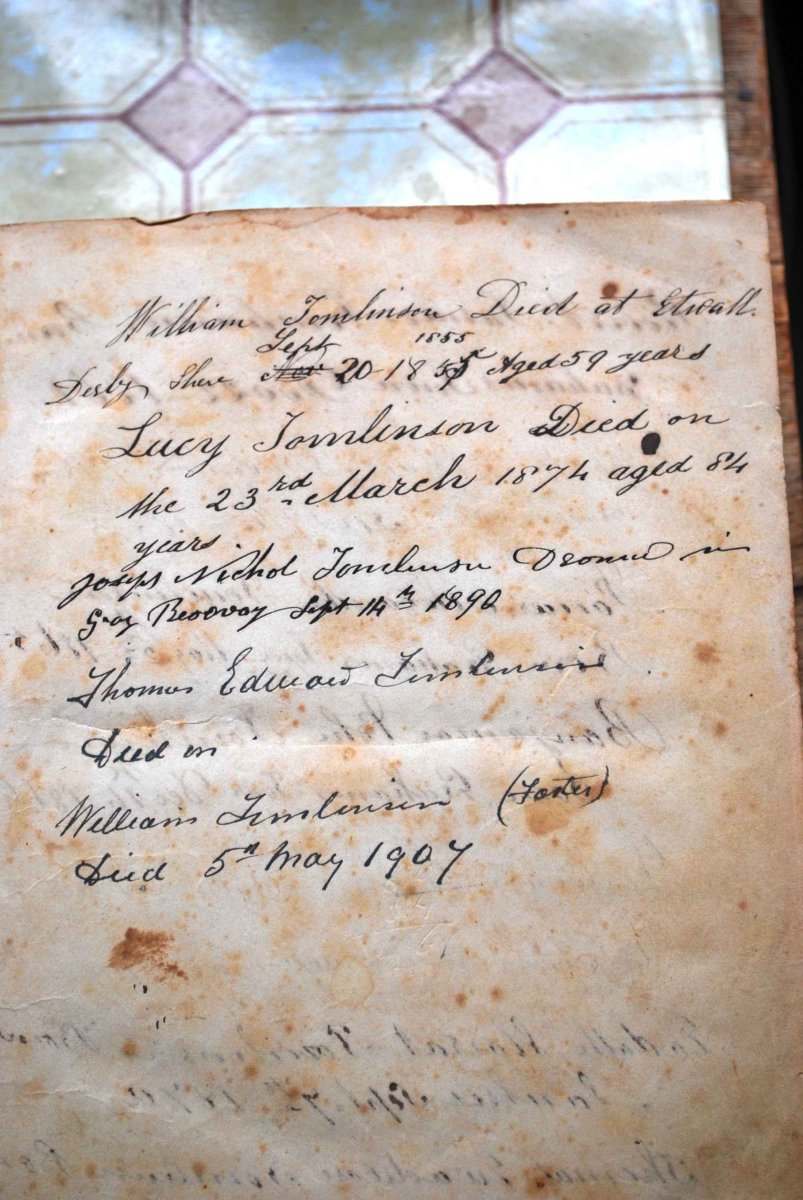 William Tomlinson Died at Etwall.
Sept 1855
Derby Shere Nov 20 1855 Aged 59 years
Lucy Tomlinson Died on
the 23rd March 1874 aged 84
years.
Nichol Tomlinson in
Sept 14th 1890
Thomas Edward Tomlinson
Died on
William Tomlinson (Foster)
Died 5th May 1907